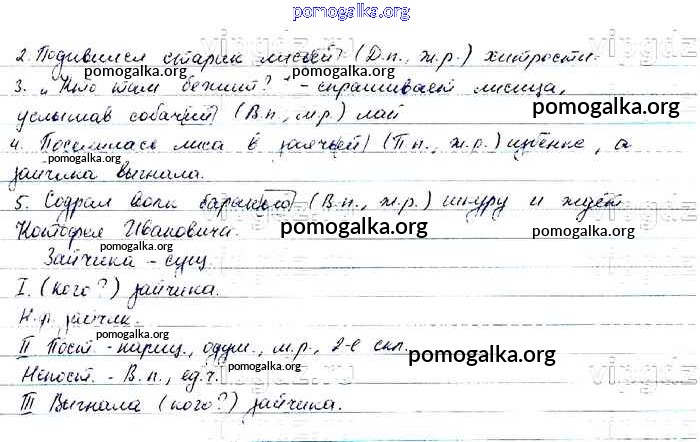 pomogalka.org
2. Подивился старик лисьей (Д.п., ж.р.) хитрости.
pomogalka.org
3. „Кто там бежит?" - спрашивает лисица,
pomogalka.org
услышав собачий (В.п., м.р.) лай
pomogalka.org
4. Поселилась лиса в заячьей (П.п., ж.р.) избёнке, а
pomogalka.org
зайчика выгнала.
pomogalka.org
5. Содрал волк баранью (В.п., ж.р.) шкуру и ждёт
pomogalka.org
Котофея Ивановича.
pomogalka.org
pomogalka.org
Зайчика - сущ.
I. (кого?) зайчика.
pomogalka.org
Н.ф. зайчик.
pomogalka.org
II Пост. - нариц., одуш., м.р., 2-е скл.
pomogalka.org
Непост. - В.п., ед.ч.
pomogalka.org
III Выгнала (кого?) зайчика.
pomogalka.org